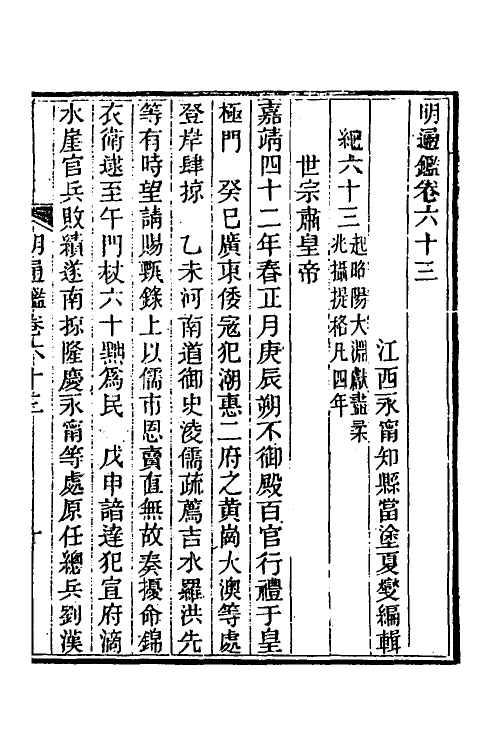 明通鑑卷六十三
江西永甯知縣當塗夏燮編輯
紀六十三起略陽大淵獻盡柔
兆攝提格凡四年
世宗肅皇帝
嘉靖四十二年春正月庚辰朔不御殿百官行禮于皇
極門　癸巳廣東倭寇犯潮惠二府之黃崗大澳等處
登岸肆掠　乙未河南道御史淩儒疏薦吉水羅洪先
等有時望請賜甄錄上以儒市恩賣直無故奏擾命錦
衣衛逮至午門杖六十黜爲民　戊申諳達犯宣府滴
水崖官兵敗績遂南掠隆慶永甯等處原任總兵劉漢
明通鑑卷六十三